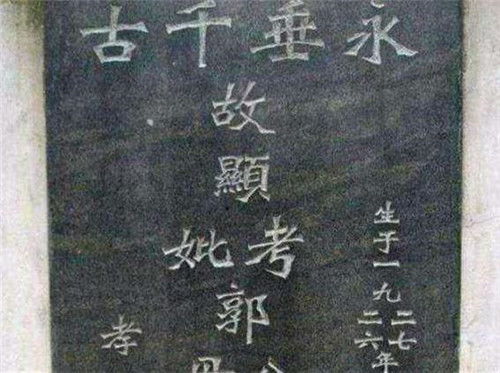 永垂千古
生于一九二七年
二六
故顯
考妣
郭
孝